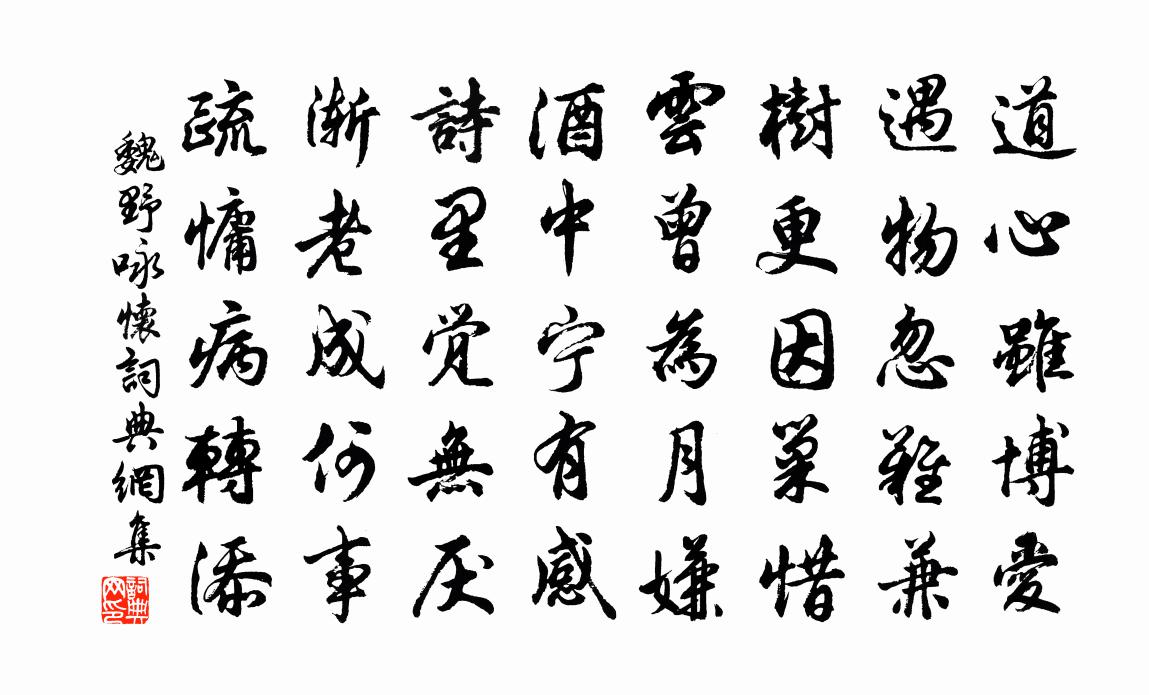 道心雖博愛
遇物忽難兼
樹更因巢惜
雲曾為月嫌
酒中宁有感
詩里覚無厌
渐老成何事
疏慵病轉添
魏野咏懷詞典網集
詞典